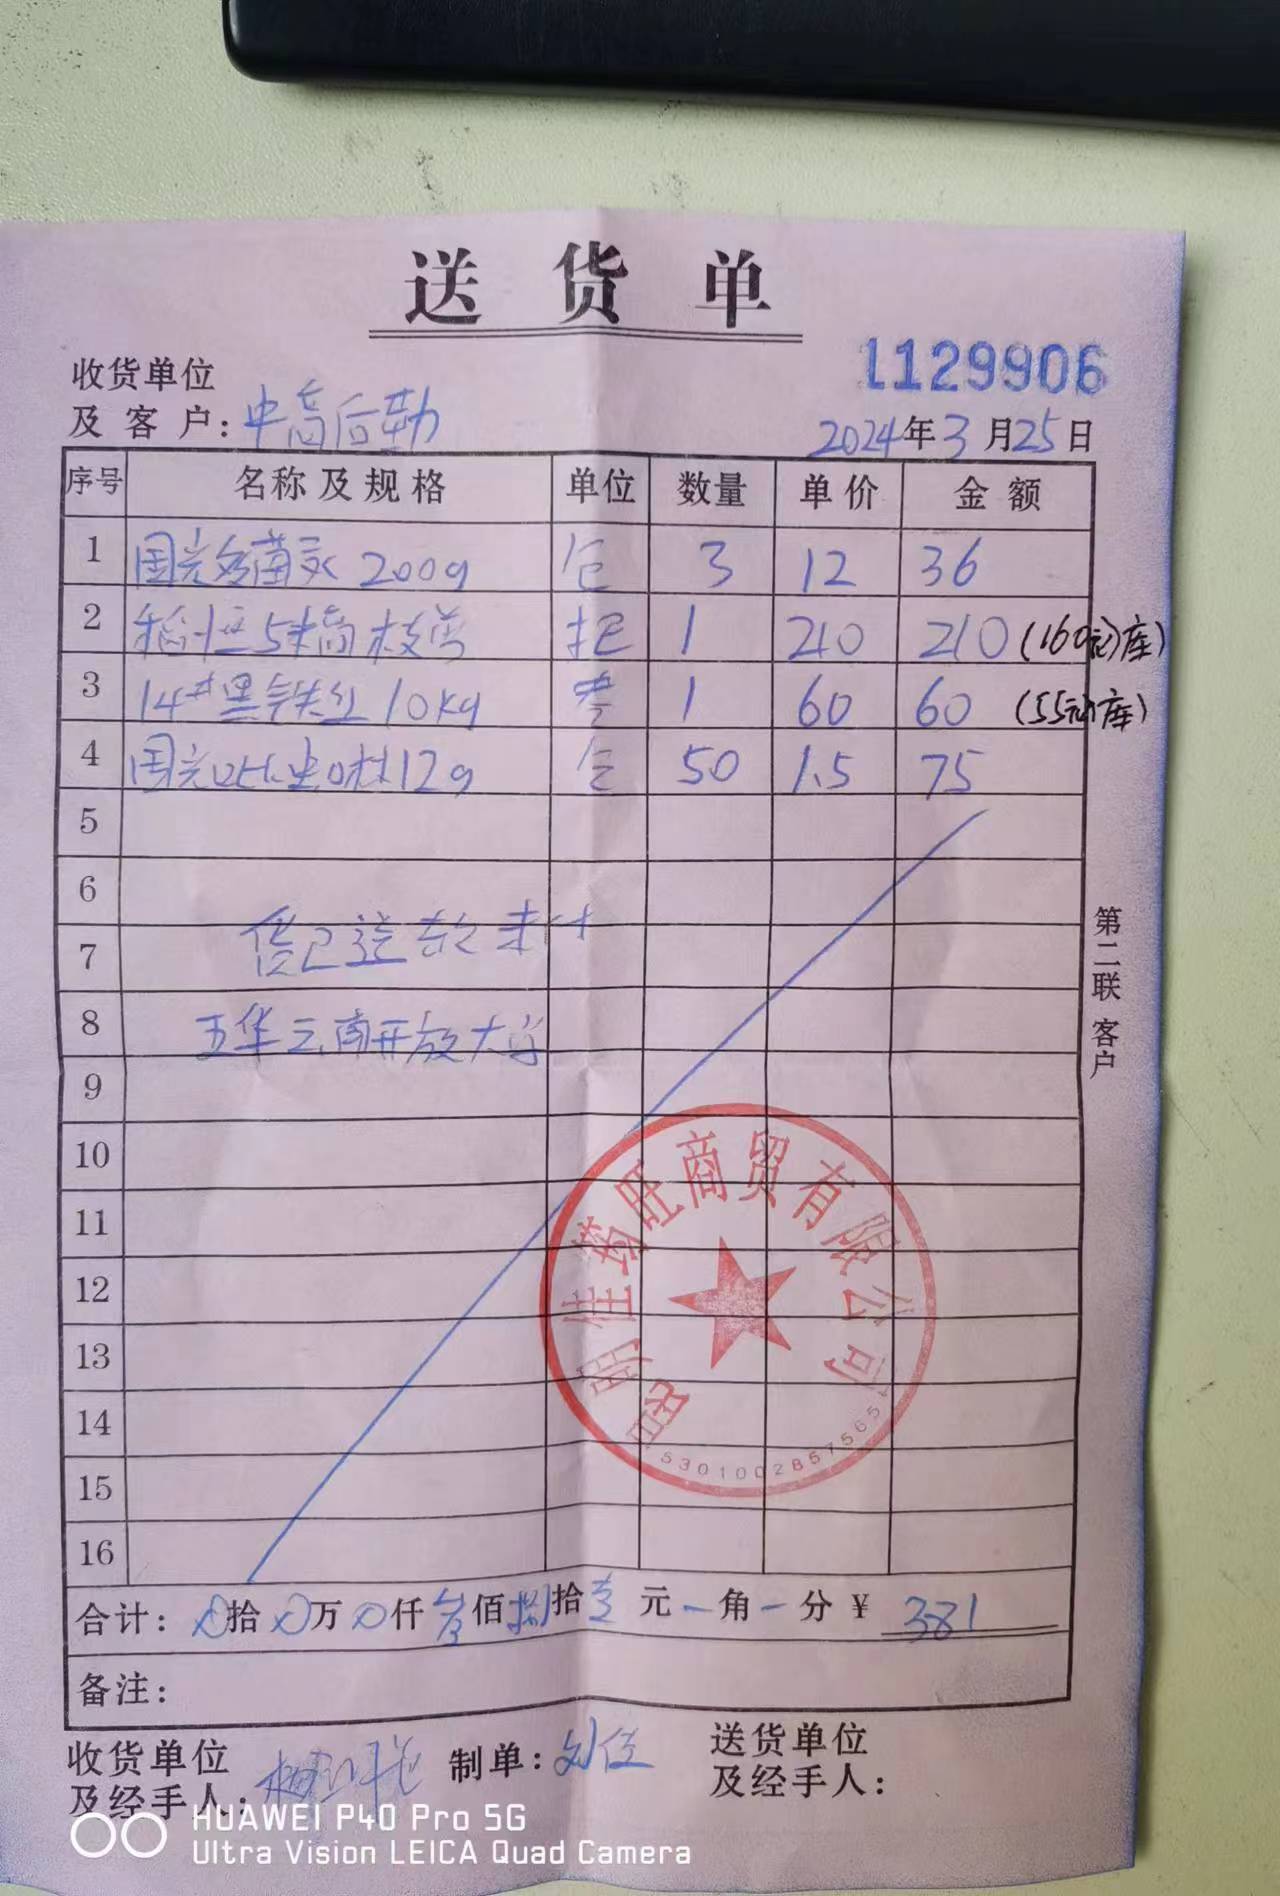 送货单
1129906
收货单位
及客户: 中高后勤
2024年3月25日
序号 名称及规格 单位 数量 单价 金额
1 国光多菌灵 200g 包 3 12 36
2 5米高枝剪 把 1 210 210 (160元库)
3 14#黑铁丝 10kg 1 60 60 (55元库)
4 国光 12g 包 50 1.5 75
5
6
7 货已送款未付
8 五华云南开放大学
9
10
11
12
13
14
15
16
第二联 客户
昆明佳筠旺商贸有限公司
5301002857565
合计: 拾 万 仟 叁佰捌拾壹元 角 分 ¥ 381
备注:
收货单位
及经手人:
制单: 刘佳
送货单位
及经手人:
HUAWEI P40 Pro 5G
Ultra Vision LEICA Quad Camera